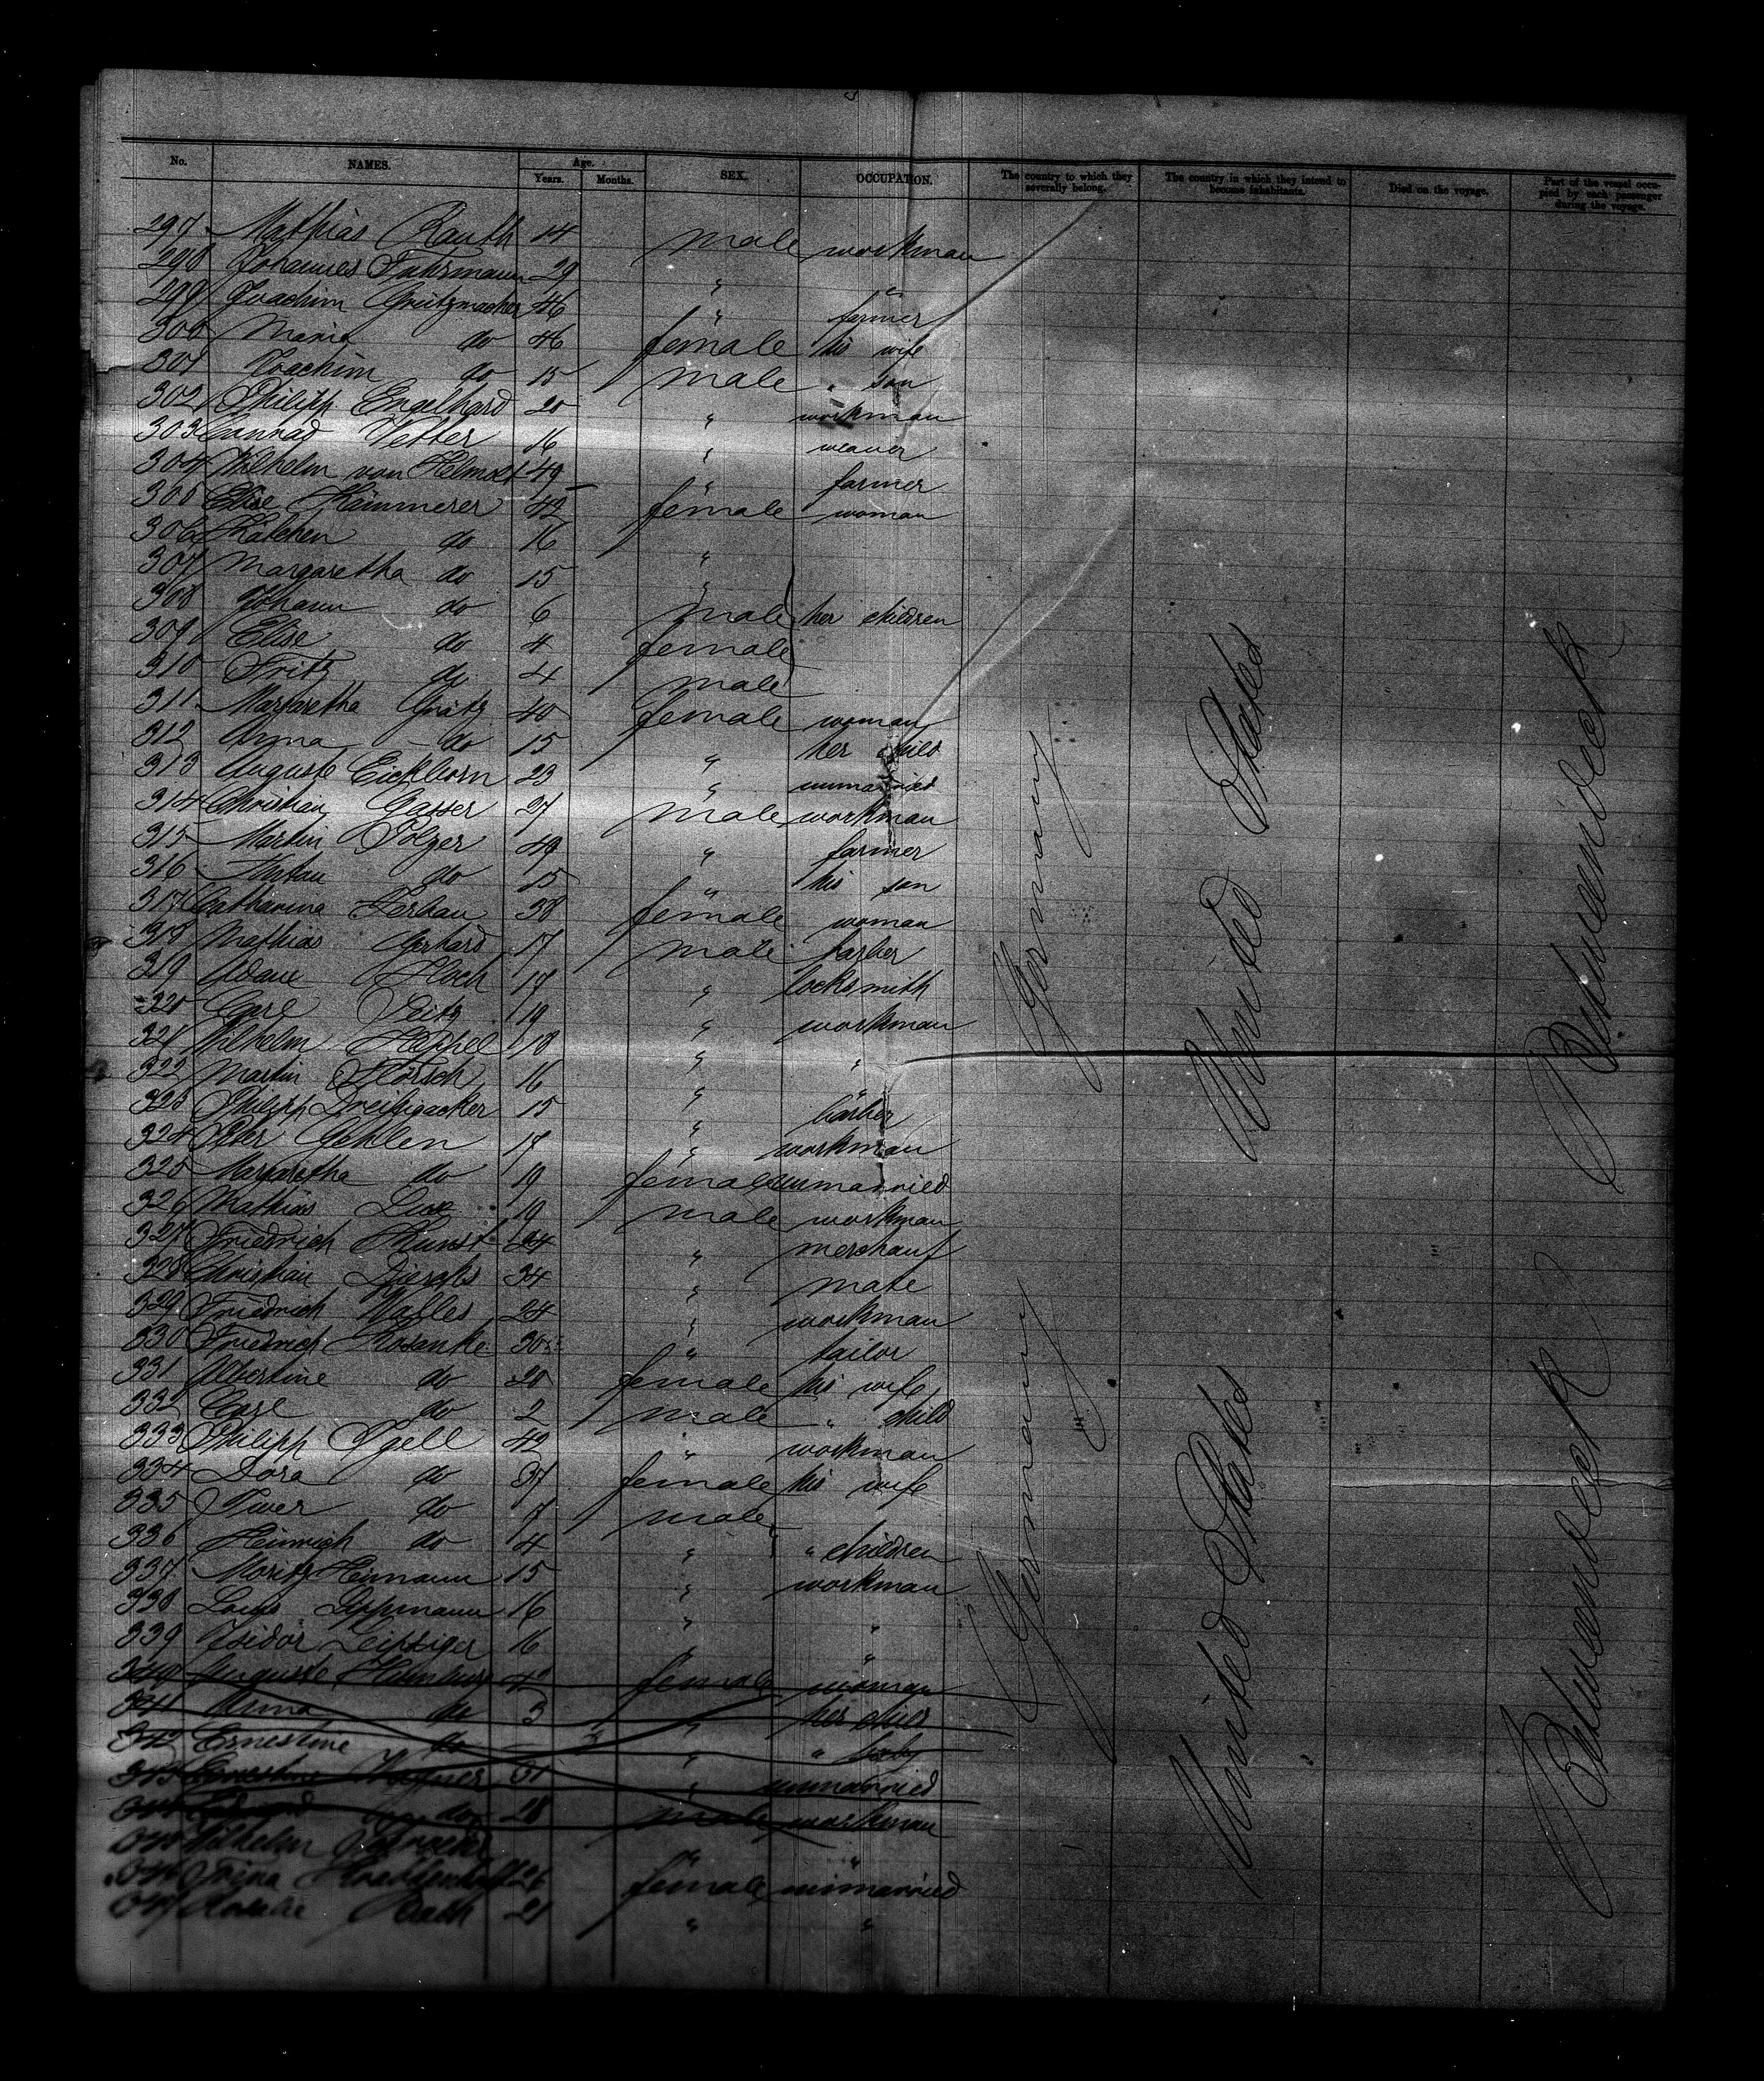 No. NAMES. Age. Years. Months. SEX. OCCUPATION. The country to which they severally belong. The country in which they intend to become inhabitants. Died on the voyage. Part of the vessel occupied by each passenger during the voyage.
297 Mathias Rauth 14 male workman
298 Johannes Fuhrmann 29 " "
299 Joachim Grützmacher 46 " farmer
300 Maria do 46 female his wife
301 Joachim do 15 male " son
302 Philipp Engelhard 20 " workman
303 Conrad Vetter 16 " weaver
304 Wilhelm von Helmolt 49 " farmer
305 Elise Kämmerer 42 female woman
306 Katchen do 16 "
307 Margaretha do 15 "
308 Johann do 6 male her children
309 Elise do 4 female
310 Fritz do 4 male
311 Margaretha Grätz 40 female woman
312 Anna do 15 " her child
313 Auguste Eichhorn 23 " unmarried
314 Christian Gasser 27 male workman
315 Martin Polzer 49 " farmer
316 Anton do 15 " his son
317 Catharina 38 female woman
318 Mathias Gerhard 17 male barber
319 Adam Hoch 17 " locksmith
320 Carl Seitz 19 " workman
321 Wilhelm Heppel 18 " "
322 Martin 16 " "
323 Philipp Dreissigacker 15 " barber
324 Peter Gehlen 17 " workman
325 Margaretha do 19 female unmarried
326 Mathias Lux 19 male workman
327 Friedrich Kunst 24 " merchant
328 Christian 34 " mate
329 Friedrich Walles 24 " workman
330 Friedrich Kosanke 30 " tailor
331 Albertine do 20 female his wife
332 Carl do 2 male " child
333 Philipp Igell 42 " workman
334 Dora do 37 female his wife
335 Iwer do 7 male
336 Heinrich do 4 " " children
337 Moritz Heimann 15 " workman
338 Louis Lippmann 16 " "
339 Isidor Leipziger 16 " "
340 Auguste 42 female woman
341 Anna do 3 " her child
342 Ernestine do " " baby
343 Ernestine 31 " unmarried
344 do 28 male workman
345 Wilhelm " "
346 Trina 26 female unmarried
347 Rath 21 " "
Germany
United States
Betweendeck
Germany
United States
Betweendeck